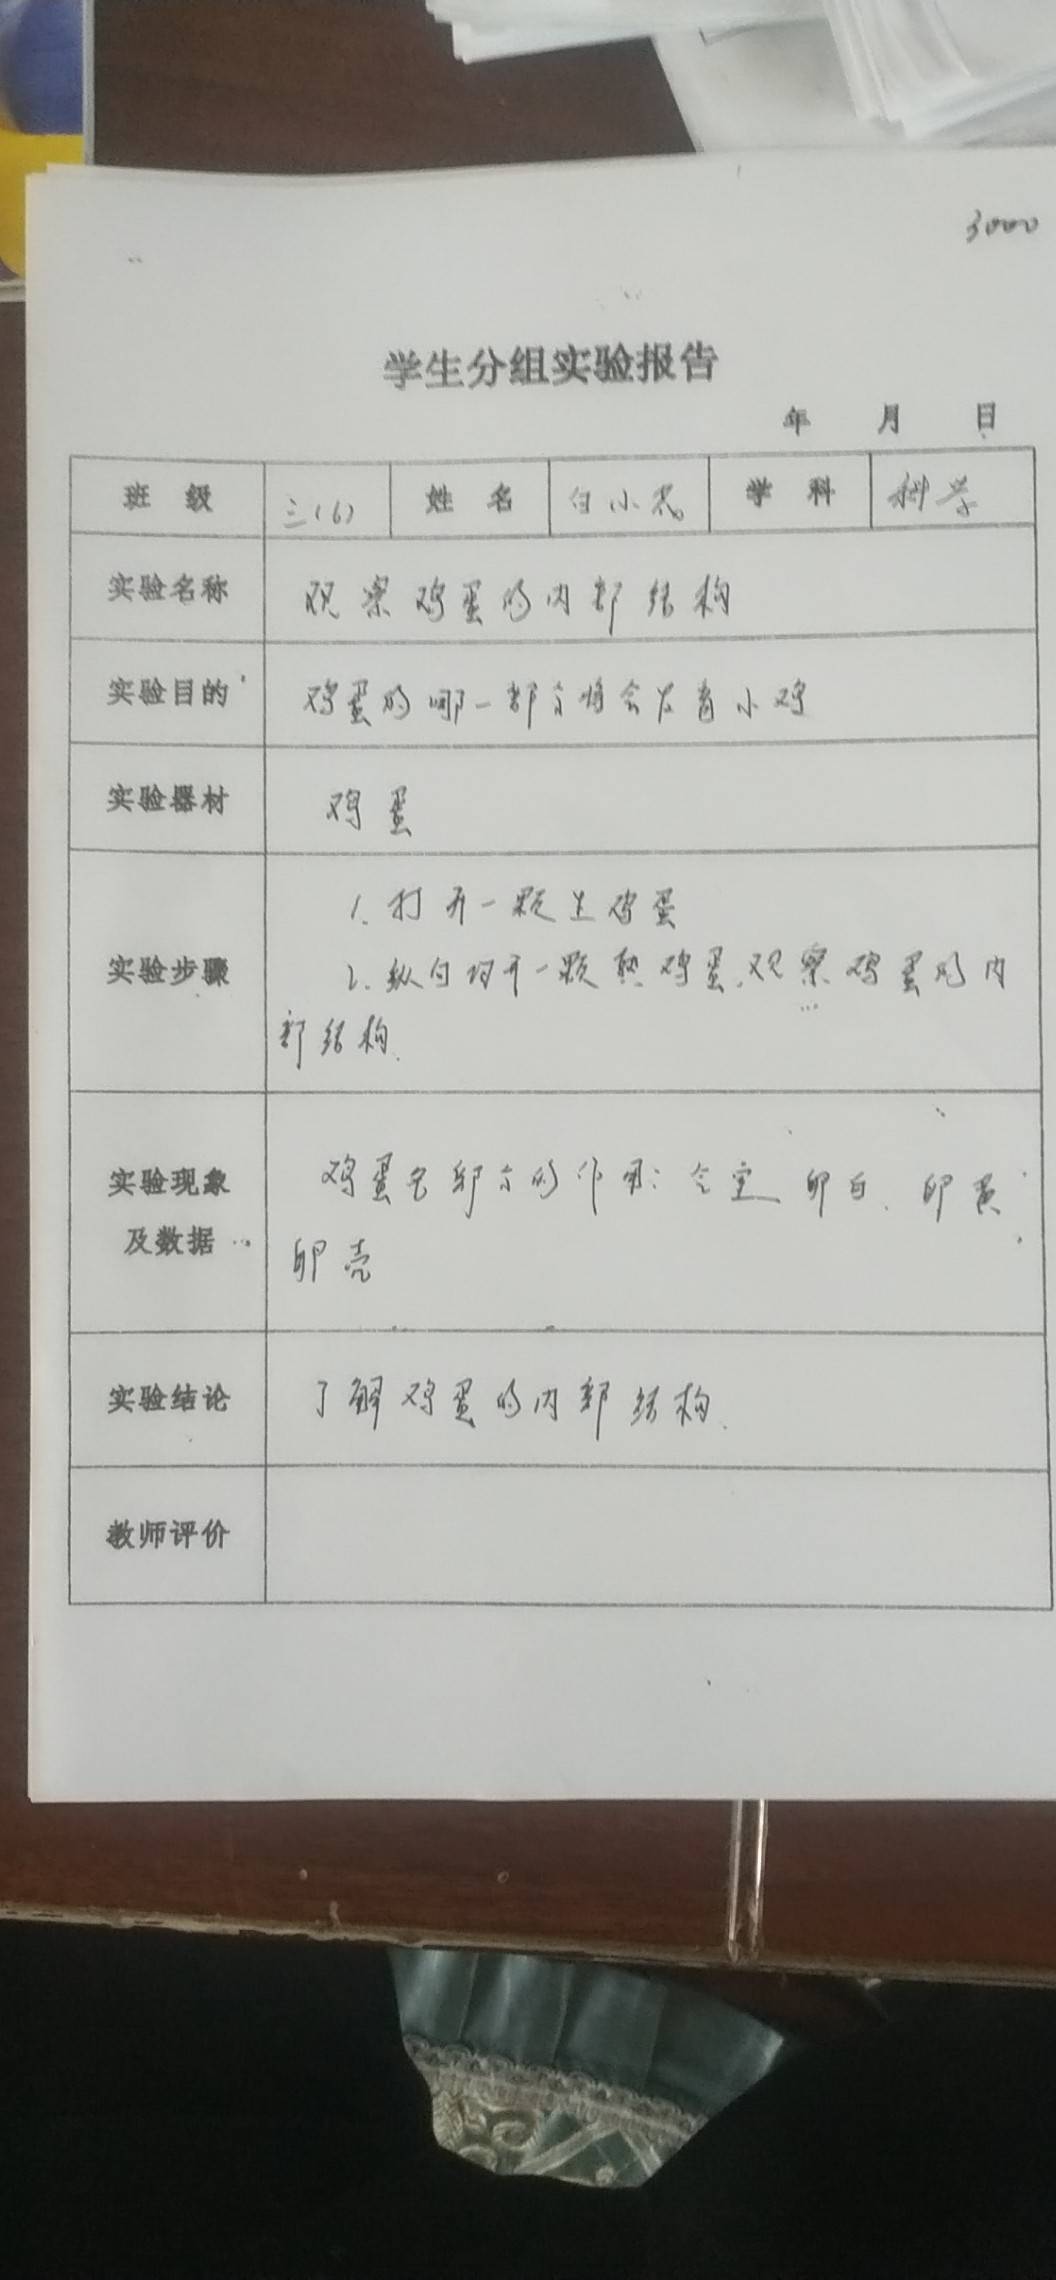 3000
学生分组实验报告
年 月 日
班 级 三(6) 姓 名 白小 学 科 科学
实验名称 观察鸡蛋的内部结构
实验目的 鸡蛋的哪一部分将会发育小鸡
实验器材 鸡蛋
1. 打开一颗生鸡蛋
实验步骤 2. 纵向切开一颗熟鸡蛋,观察鸡蛋的内
部结构.
实验现象 鸡蛋各部分的作用:气室、卵白、卵黄、
及数据 卵壳
实验结论 了解鸡蛋的内部结构.
教师评价